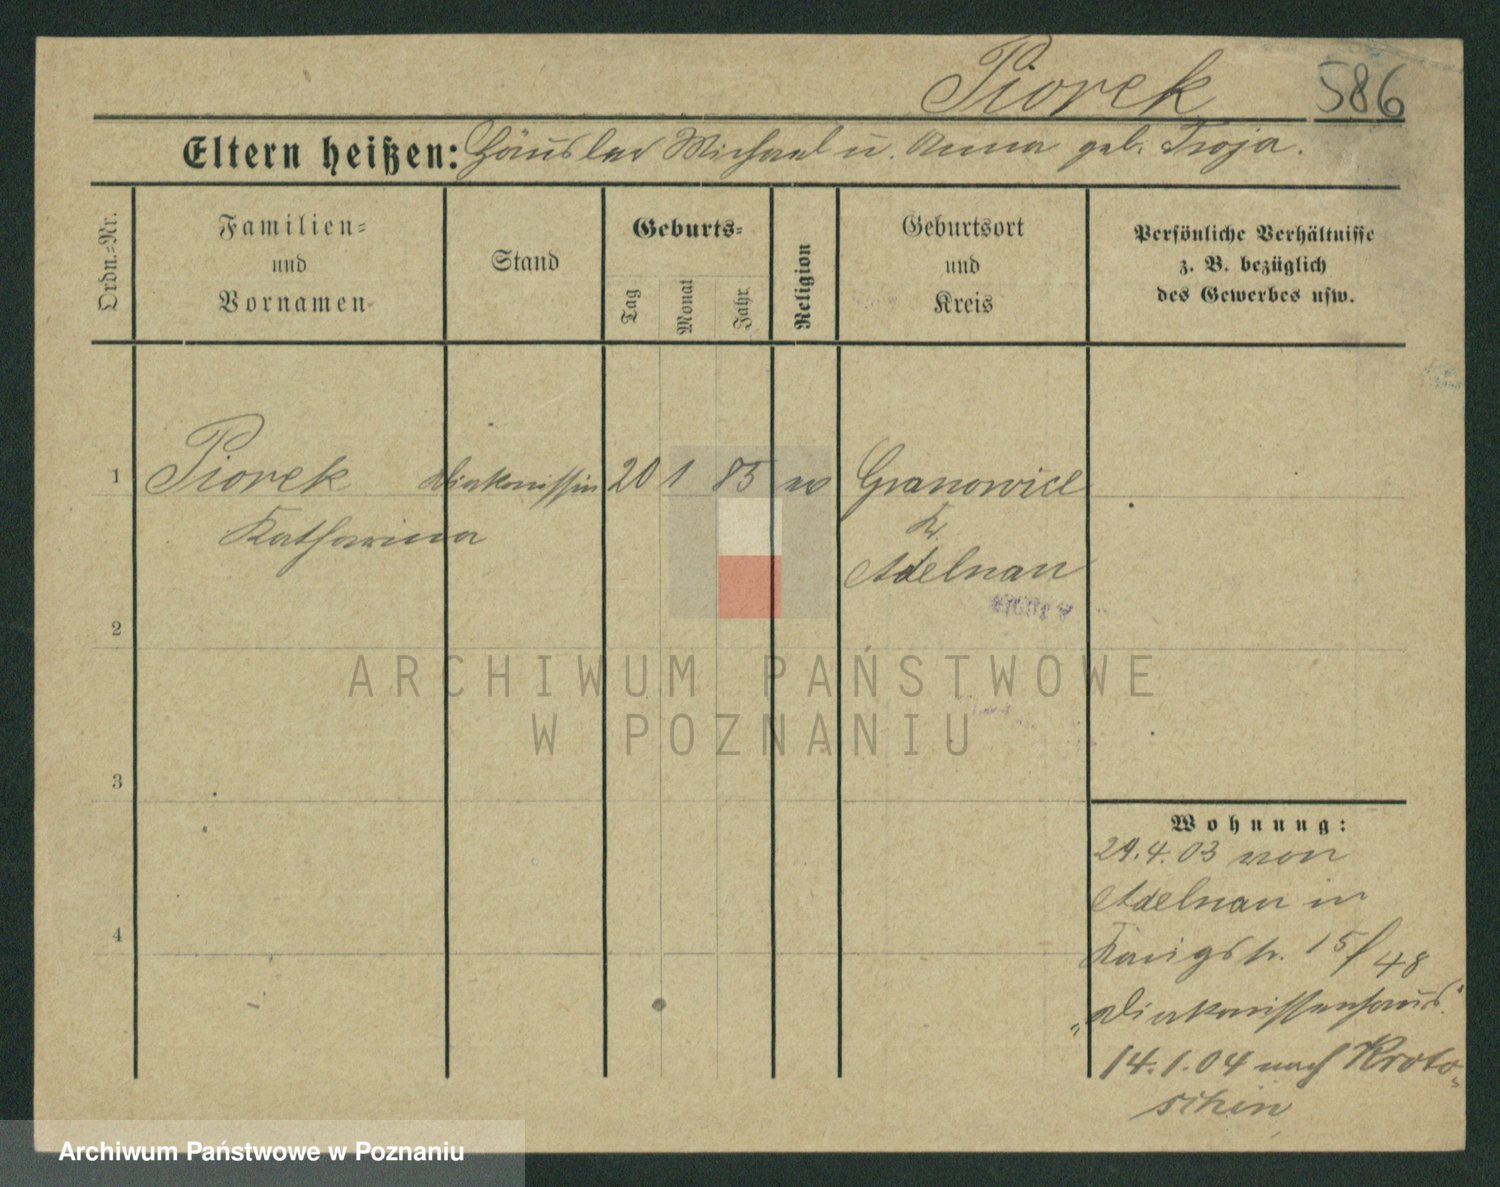 Piorek 586
Eltern heißen: Häusler Michael u. Anna geb. Troja.
Ordn.-Nr.
Familien-
und
Vornamen
Stand
Geburts-
Tag
Monat
Jahr
Religion
Geburtsort
und
Kreis
Persönliche Verhältnisse
z. B. bezüglich
des Gewerbes usw.
1 Piorek Diakonissin 20 1 85 Granowicl
Katharina
Kr.
Adelnau
2
ARCHIWUM PAŃSTWOWE
W POZNANIU
3
Wohnung:
29.4.03 von
Adelnau in
4
Königstr. 15/48
„Diakonissenhaus“
14.1.04 nach Kroto-
schin
Archiwum Państwowe w Poznaniu